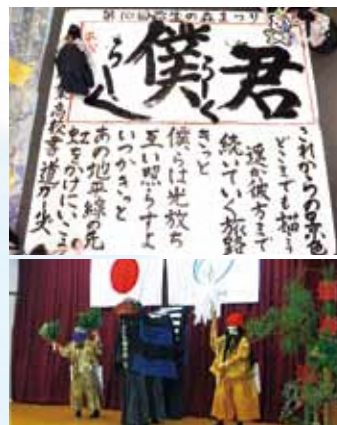 第10回弥生の森まつり
君
らーく
僕
らーく
これからの景色
どこまでも描こう
遥か彼方まで
続いていく旅路
きっと
僕らは光放ち
互い照らすよ
いつかきっと
あの地平線の先
虹をかけにいこう
高校書道ガールズ